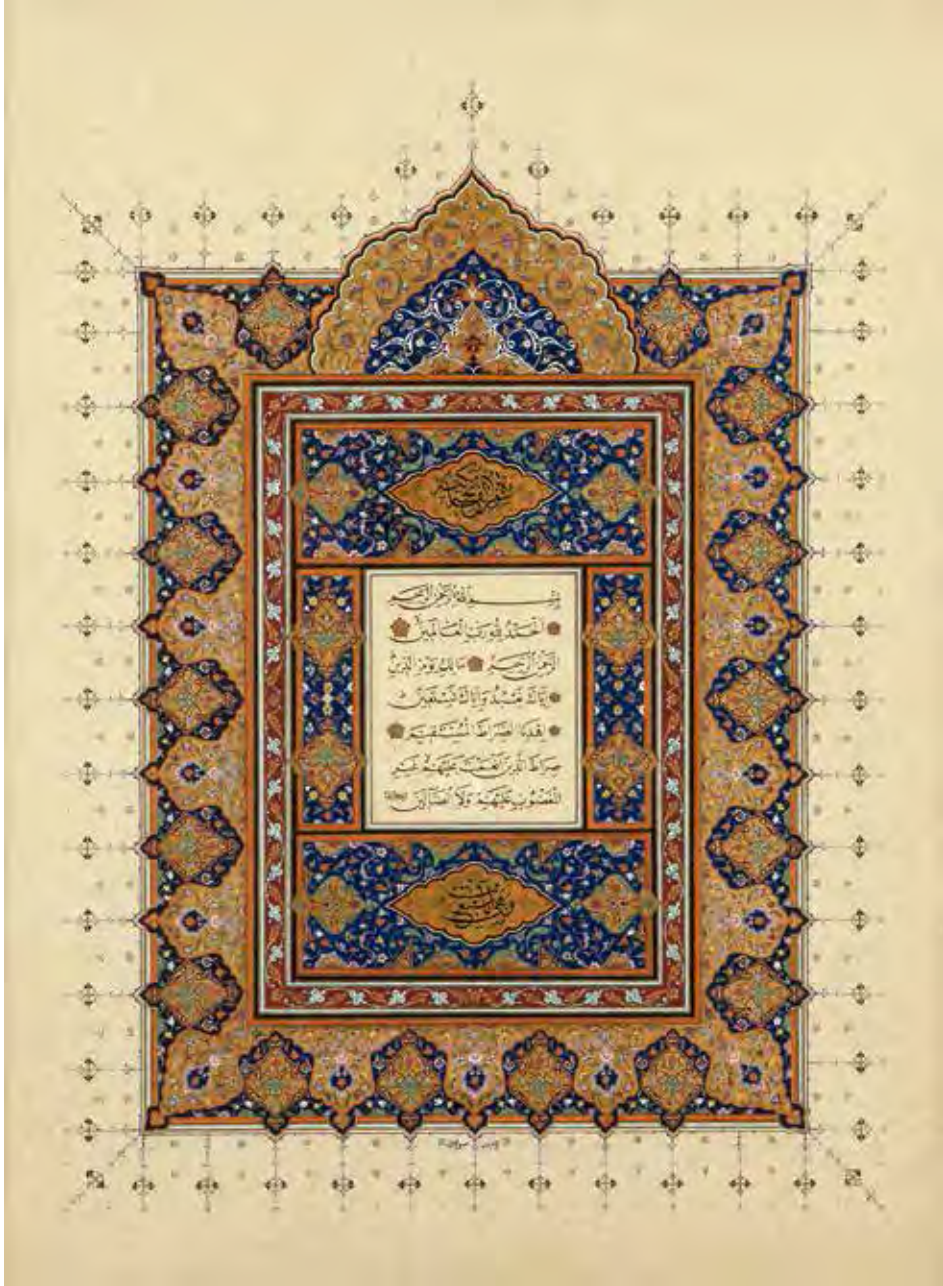 سورة الفاتحة
بسم الله الرحمن الرحيم
الحمد لله رب العالمين
الرحمن الرحيم مالك يوم الدين
إياك نعبد وإياك نستعين
اهدنا الصراط المستقيم
صراط الذين أنعمت عليهم غير
المغضوب عليهم ولا الضالين